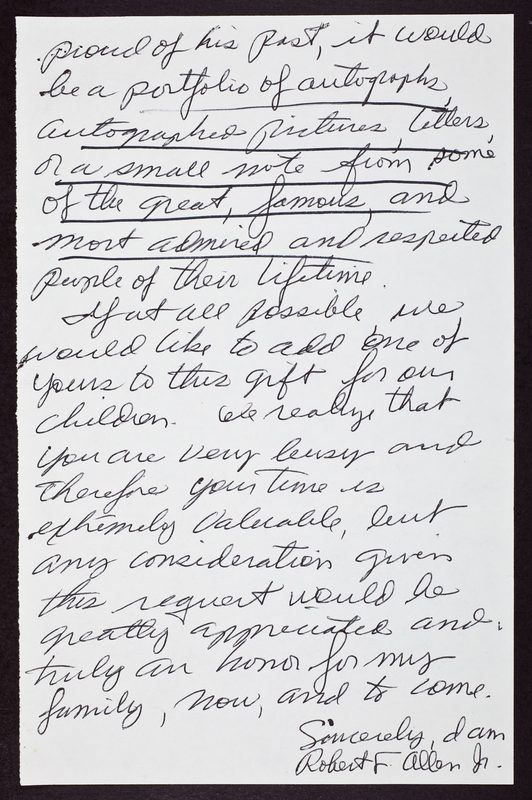 proud of his past, it would
be a portfolio of autographs,
autographed pictures, letters,
or a small note from some
of the great, famous, and
most admired and respected
people of their lifetime.
If at all possible, we
would like to add one of
yours to this gift for our
children. We realize that
you are very busy and
therefore your time is
extremely valuable, but
any consideration given
this request would be
greatly appreciated and,
truly an honor for my
family, now, and to come.
Sincerely, I am
Robert F. Allen Jr.